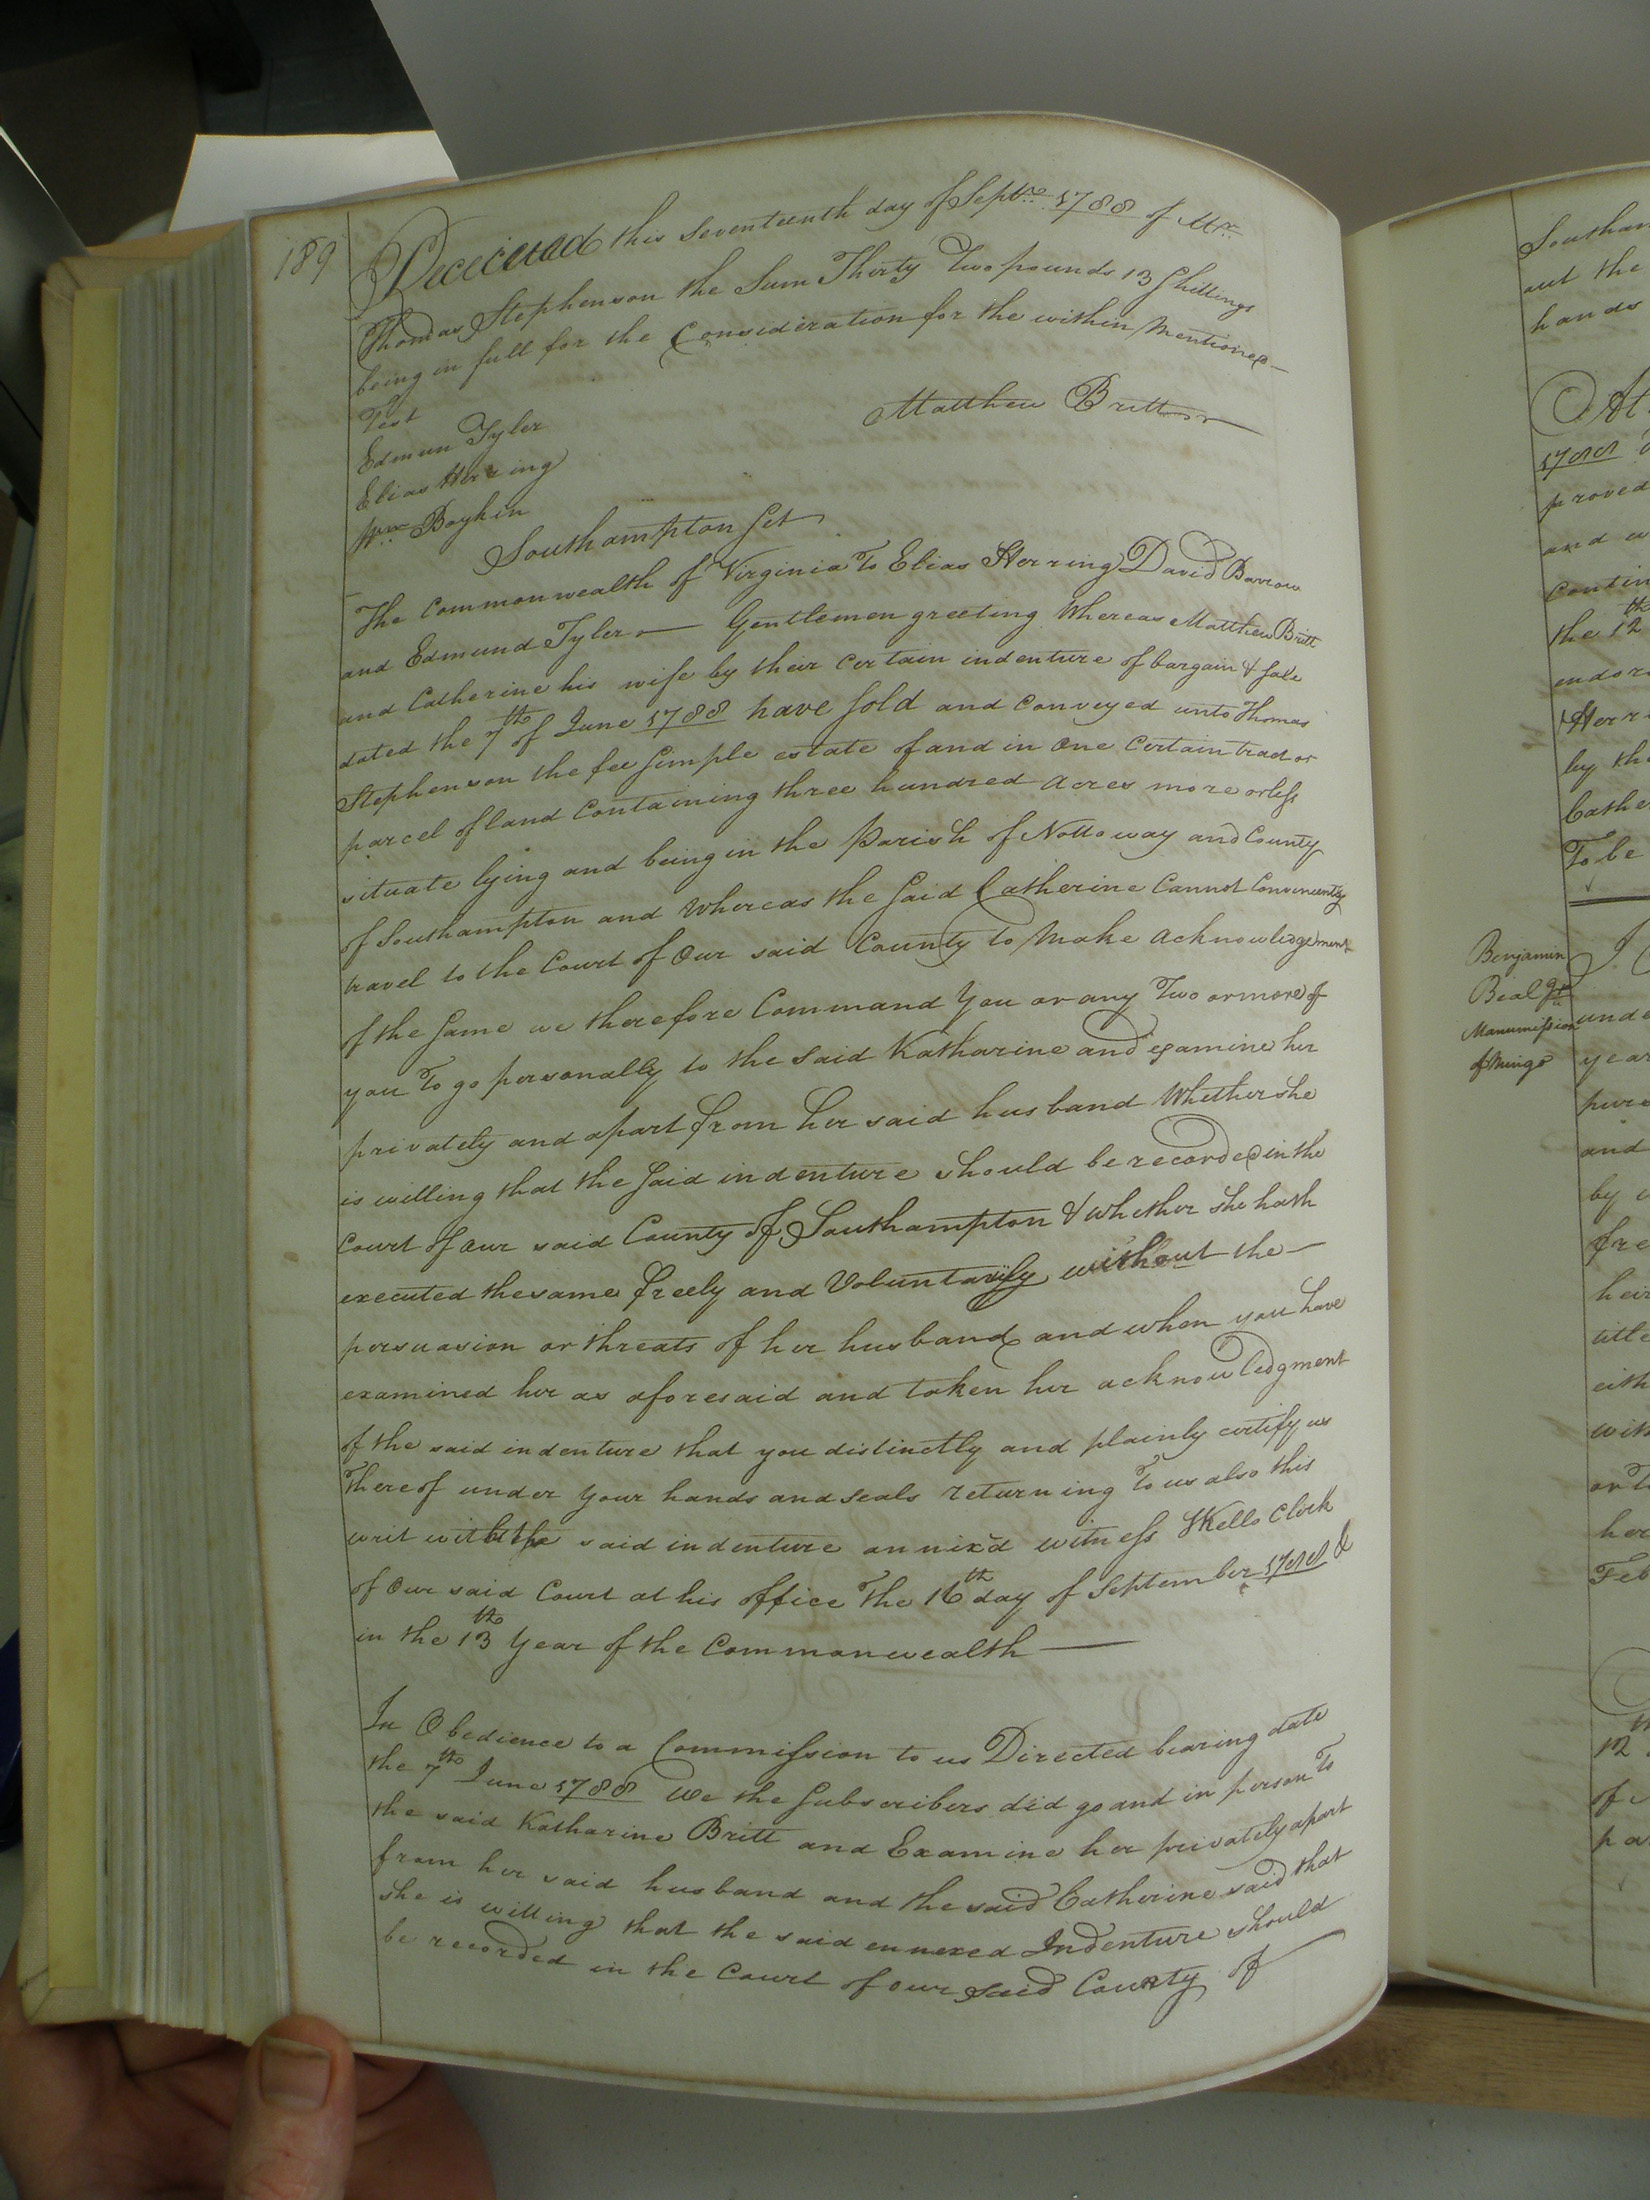 189
Received this seventeenth day of Septr. 1788 of Mr.
Thomas Stephenson the Sum Thirty Two pounds 13 Shillings
being in full for the Consideration for the within Mentioned
Test
Matthew Britt
Edmun Tyler
Elias Herring
Wm. Boykin
Southampton Sct
The Commonwealth of Virginia To Elias Herring David Barrow
and Edmund Tyler — Gentlemen greeting Whereas Matthew Britt
and Catherine his wife by their certain indenture of bargain & Sale
dated the 7th of June 1788 have Sold and Conveyed unto Thomas
Stephenson the fee Simple estate of and in One Certain tract or
parcel of land Containing three hundred Acres more or less
situate lying and being in the Parish of Nottoway and County
of Southampton and Whereas the Said Catherine Cannot Conveniently
travel to the Court of Our said County to Make Acknowledgement
of the Same we therefore Command You or any Two or more of
you To go personally to the Said Katharine and examine her
privately and apart from her said husband Whether she
is willing that the Said indenture should be recorded in the
Court of our said County of Southampton & whether she hath
executed the same freely and Voluntarily without the —
persuasion or threats of her husband and when you have
examined her as aforesaid and taken her acknowledgment
of the said indenture that you distinctly and plainly certify us
Thereof under your hands and seals returning To us also this
writ with the said indenture annix'd witness SKello Clerk
of Our said Court at his office The 16th day of September 1788 &
in the 13th Year of the Commonwealth —
In Obedience to a Commission to us Directed bearing date
the 7th June 1788 We the Subscribers did go and in person To
the said Katharine Britt and Examine her privately apart
from her said husband and the said Catherine said that
she is willing that the said ennexed Indenture should
be recorded in the Court of our said County of
out the
hands
At
1788
proved
the 12th
by the
To be
Benjamin
Beal Jr
Manumission
of Mingo
and
by
12th
of